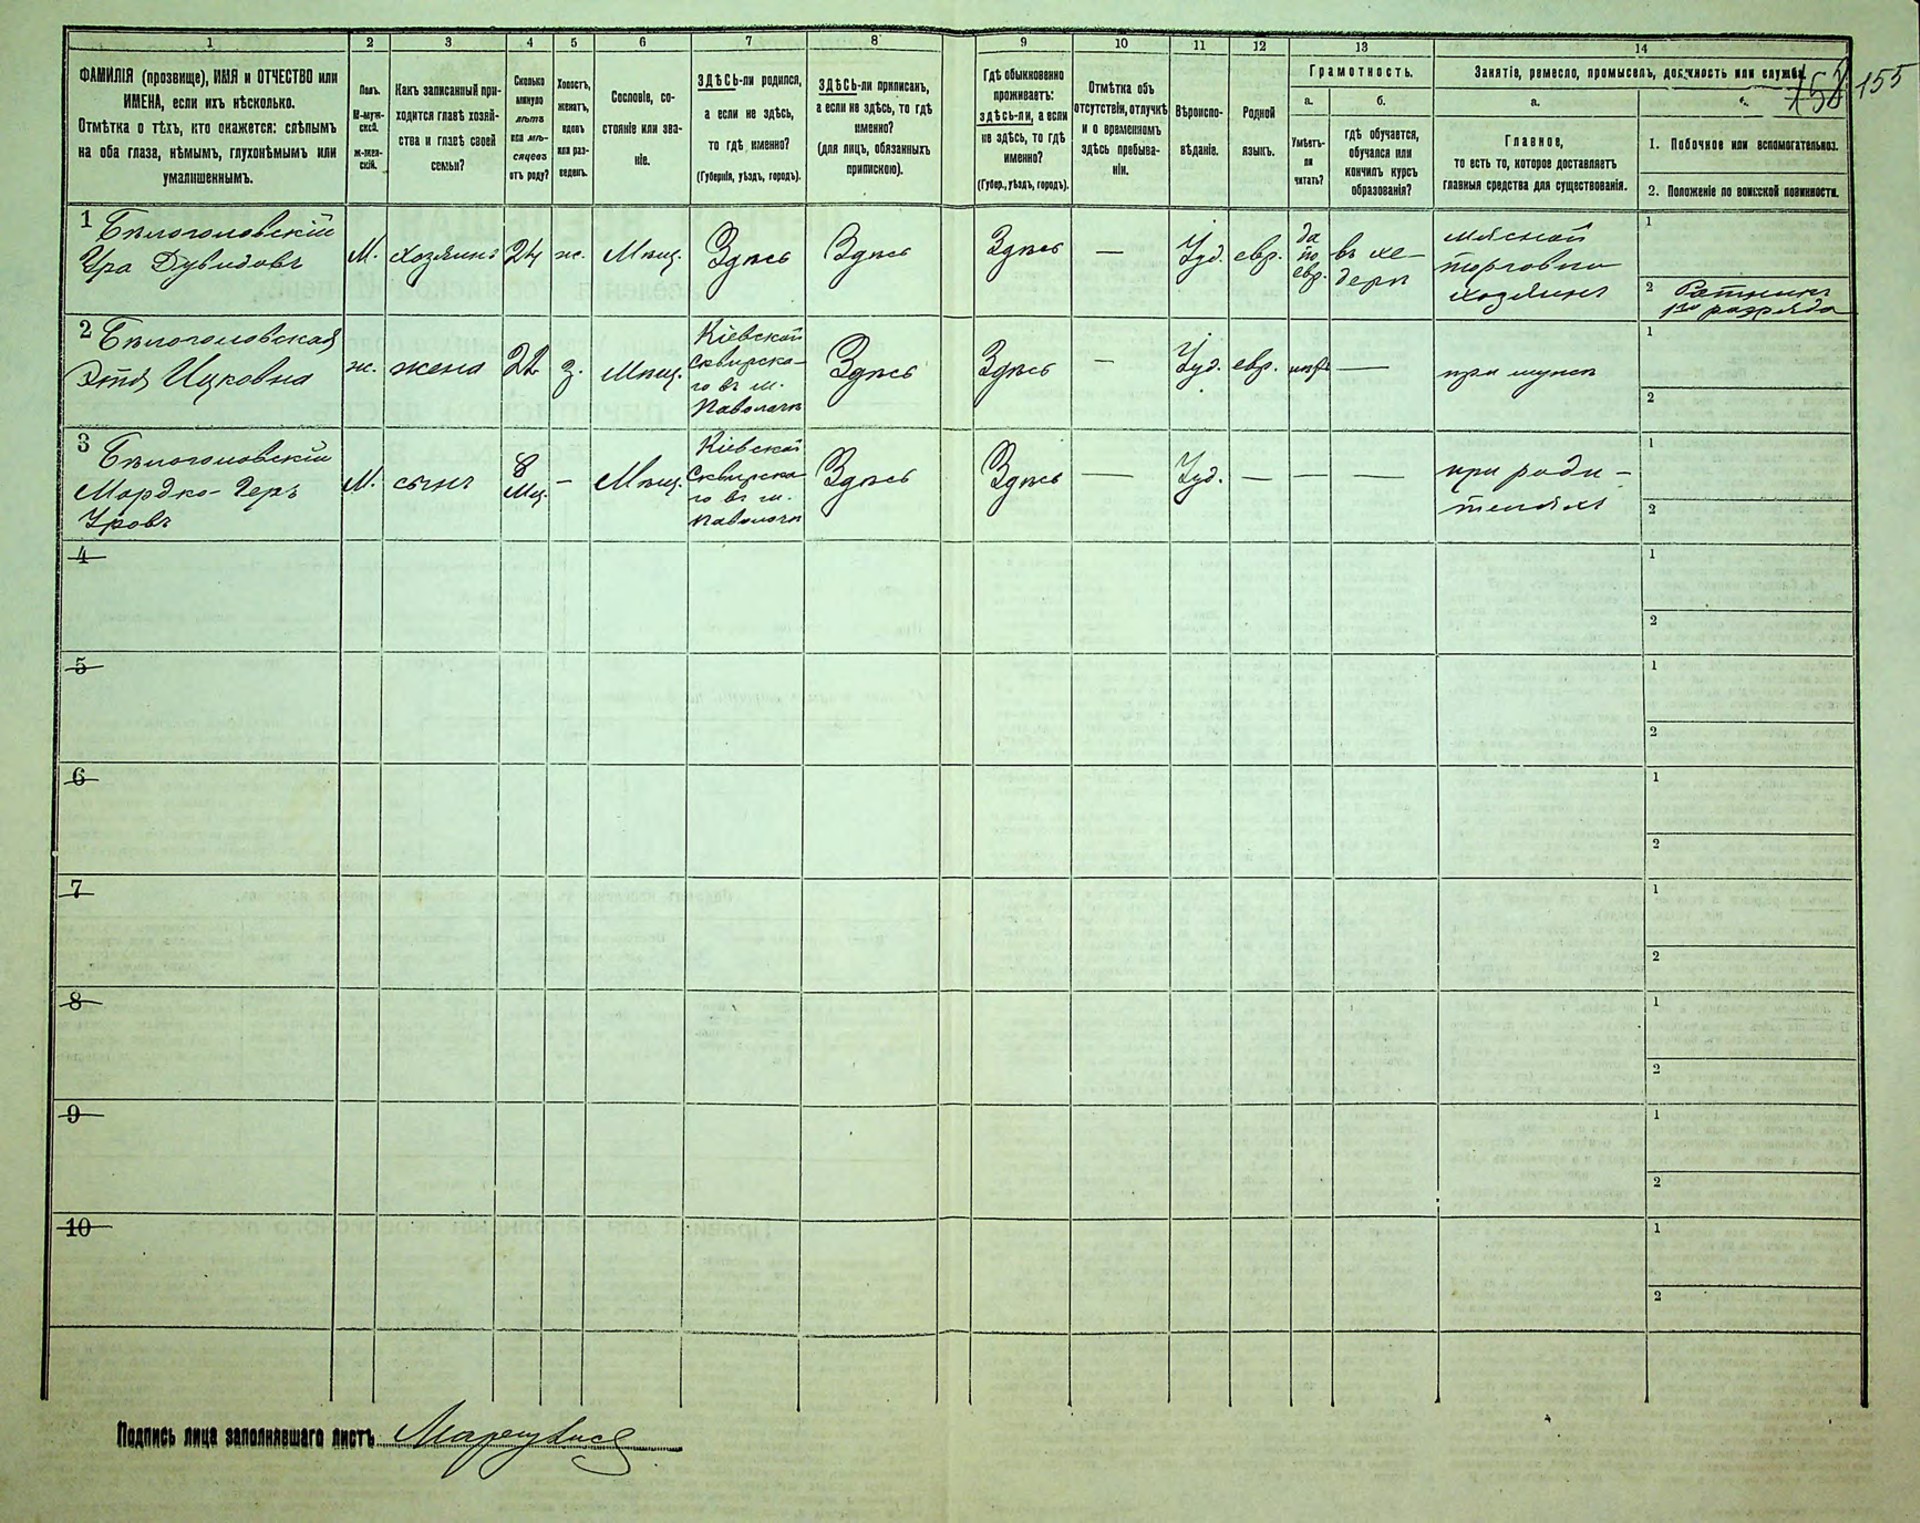 1 2 3 4 5 6 7 8 9 10 11 12 13 14
ФАМИЛІЯ (прозвище), ИМЯ и ОТЧЕСТВО или
ИМЕНА, если ихъ нѣсколько.
Отмѣтка о тѣхъ, кто окажется: слѣпымъ
на оба глаза, нѣмымъ, глухонѣмымъ или
умалишеннымъ.
Полъ.
М-муж-
ской.
Ж-жен-
скій.
Какъ записанный при-
ходится главѣ хозяй-
ства и главѣ своей
семьи?
Сколько
минуло
лѣтъ
или мѣ-
сяцевъ
отъ роду?
Холостъ,
женатъ,
вдовъ
или раз-
веденъ.
Сословіе, со-
стояніе или зва-
ніе.
ЗДѢСЬ-ли родился,
а если не здѣсь,
то гдѣ именно?
(Губернія, уѣздъ, городъ).
ЗДѢСЬ-ли приписанъ,
а если не здѣсь, то гдѣ
именно?
(для лицъ, обязанныхъ
припискою).
Гдѣ обыкновенно
проживаетъ:
здѣсь-ли, а если
не здѣсь, то гдѣ
именно?
(Губер., уѣздъ, городъ).
Отмѣтка объ
отсутствіи, отлучкѣ
и о временномъ
здѣсь пребыва-
ніи.
Вѣроиспо-
вѣданіе.
Родной
языкъ.
Грамотность.
а.
Умѣетъ-
ли
читать?
б.
гдѣ обучается,
обучался или
кончилъ курсъ
образованія?
Занятіе, ремесло, промыселъ, должность или служба.
155
а.
Главное,
то есть то, которое доставляетъ
главныя средства для существованія.
1. Побочное или вспомогательное.
2. Положеніе по воинской повинности.
1 Бѣлоголовскій
Ура Дувидовъ
М.
хозяинъ
24
ж.
Мѣщ.
Здѣсь
Здѣсь
Здѣсь
—
Іуд.
евр.
да
по
евр.
въ хе-
дерѣ
мясной
торговли
хозяинъ
1
2 Ратникъ
1го разряда
2 Бѣлоголовская
Этя Ицковна
ж.
жена
22
з.
Мѣщ.
Кіевской
Сквирска-
го въ м.
Паволочи
Здѣсь
Здѣсь
—
Іуд.
евр.
нѣтъ
—
при мужѣ
1
2
3 Бѣлоголовскій
Мордко-Геръ
Уровъ
М.
сынъ
8
Мц.
—
Мѣщ.
Кіевской
Сквирска-
го въ м.
Паволочи
Здѣсь
Здѣсь
—
Іуд.
—
—
—
при роди-
теляхъ
1
2
4
1
2
5
1
2
6
1
2
7
1
2
8
1
2
9
1
2
10
1
2
Подпись лица заполнявшаго листъ